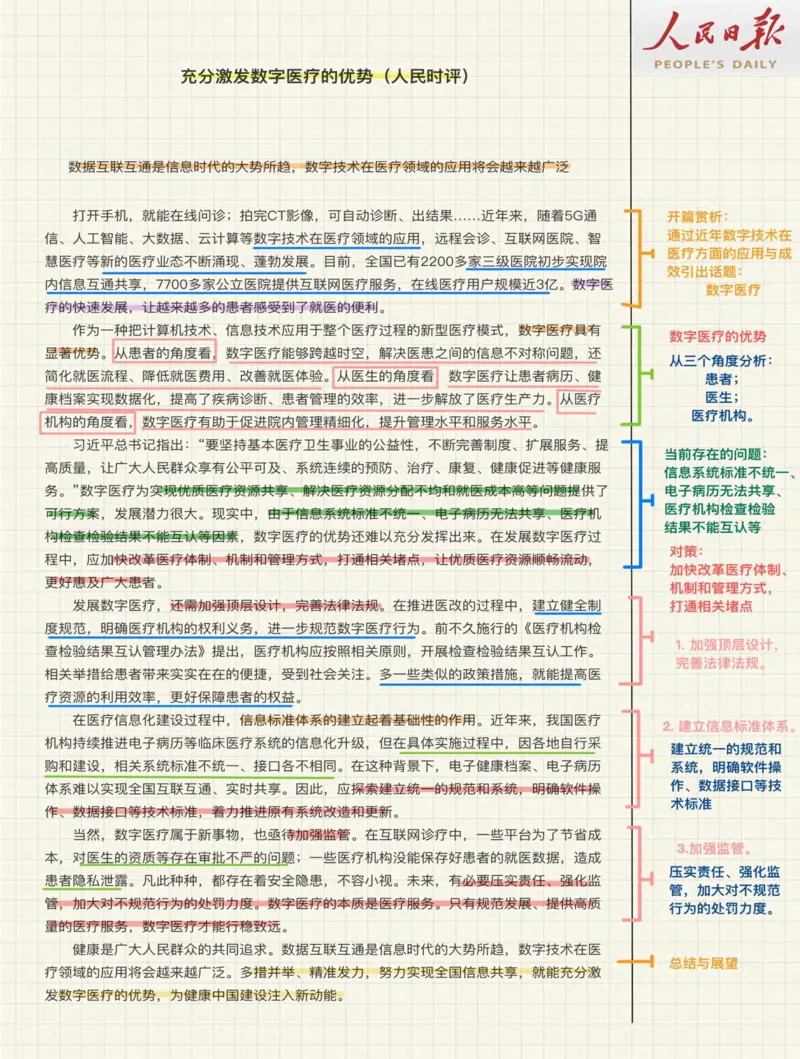 人民日报
PEOPLE'S DAILY
充分激发数字医疗的优势（人民时评）
数据互联互通是信息时代的大势所趋，数字技术在医疗领域的应用将会越来越广泛
打开手机，就能在线问诊；拍完CT影像，可自动诊断、出结果……近年来，随着5G通
信、人工智能、大数据、云计算等数字技术在医疗领域的应用，远程会诊、互联网医院、智
慧医疗等新的医疗业态不断涌现、蓬勃发展。目前，全国已有2200多家三级医院初步实现院
内信息互通共享，7700多家公立医院提供互联网医疗服务，在线医疗用户规模近3亿。数字医
疗的快速发展，让越来越多的患者感受到了就医的便利。
作为一种把计算机技术、信息技术应用于整个医疗过程的新型医疗模式，数字医疗具有
显著优势。从患者的角度看，数字医疗能够跨越时空，解决医患之间的信息不对称问题，还
简化就医流程、降低就医费用、改善就医体验。从医生的角度看 数字医疗让患者病历、健
康档案实现数据化，提高了疾病诊断、患者管理的效率，进一步解放了医疗生产力。从医疗
机构的角度看，数字医疗有助于促进院内管理精细化，提升管理水平和服务水平。
习近平总书记指出：“要坚持基本医疗卫生事业的公益性，不断完善制度、扩展服务、提
高质量，让广大人民群众享有公平可及、系统连续的预防、治疗、康复、健康促进等健康服
务。”数字医疗为实现优质医疗资源共享、解决医疗资源分配不均和就医成本高等问题提供了
可行方案，发展潜力很大。现实中，由于信息系统标准不统一、电子病历无法共享、医疗机
构检查检验结果不能互认等因素，数字医疗的优势还难以充分发挥出来。在发展数字医疗过
程中，应加快改革医疗体制、机制和管理方式，打通相关堵点，让优质医疗资源顺畅流动，
更好惠及广大患者。
发展数字医疗，还需加强顶层设计，完善法律法规。在推进医改的过程中，建立健全制
度规范，明确医疗机构的权利义务，进一步规范数字医疗行为。前不久施行的《医疗机构检
查检验结果互认管理办法》提出，医疗机构应按照相关原则，开展检查检验结果互认工作。
相关举措给患者带来实实在在的便捷，受到社会关注。多一些类似的政策措施，就能提高医
疗资源的利用效率，更好保障患者的权益。
在医疗信息化建设过程中，信息标准体系的建立起着基础性的作用。近年来，我国医疗
机构持续推进电子病历等临床医疗系统的信息化升级，但在具体实施过程中，因各地自行采
购和建设，相关系统标准不统一、接口各不相同。在这种背景下，电子健康档案、电子病历
体系难以实现全国互联互通、实时共享。因此，应探索建立统一的规范和系统，明确软件操
作、数据接口等技术标准，着力推进原有系统改造和更新。
当然，数字医疗属于新事物，也亟待加强监管。在互联网诊疗中，一些平台为了节省成
本，对医生的资质等存在审批不严的问题；一些医疗机构没能保存好患者的就医数据，造成
患者隐私泄露。凡此种种，都存在着安全隐患，不容小视。未来，有必要压实责任、强化监
管，加大对不规范行为的处罚力度。数字医疗的本质是医疗服务。只有规范发展、提供高质
量的医疗服务，数字医疗才能行稳致远。
健康是广大人民群众的共同追求。数据互联互通是信息时代的大势所趋，数字技术在医
疗领域的应用将会越来越广泛。多措并举、精准发力，努力实现全国信息共享，就能充分激
发数字医疗的优势，为健康中国建设注入新动能。
开篇赏析：
通过近年数字技术在
医疗方面的应用与成
效引出话题：
数字医疗
数字医疗的优势
从三个角度分析：
患者；
医生；
医疗机构。
当前存在的问题：
信息系统标准不统一、
电子病历无法共享、
医疗机构检查检验
结果不能互认等
对策：
加快改革医疗体制、
机制和管理方式，
打通相关堵点
1. 加强顶层设计，
完善法律法规。
2. 建立信息标准体系。
建立统一的规范和
系统，明确软件操
作、数据接口等技
术标准
3.加强监管。
压实责任、强化监
管，加大对不规范
行为的处罚力度。
总结与展望